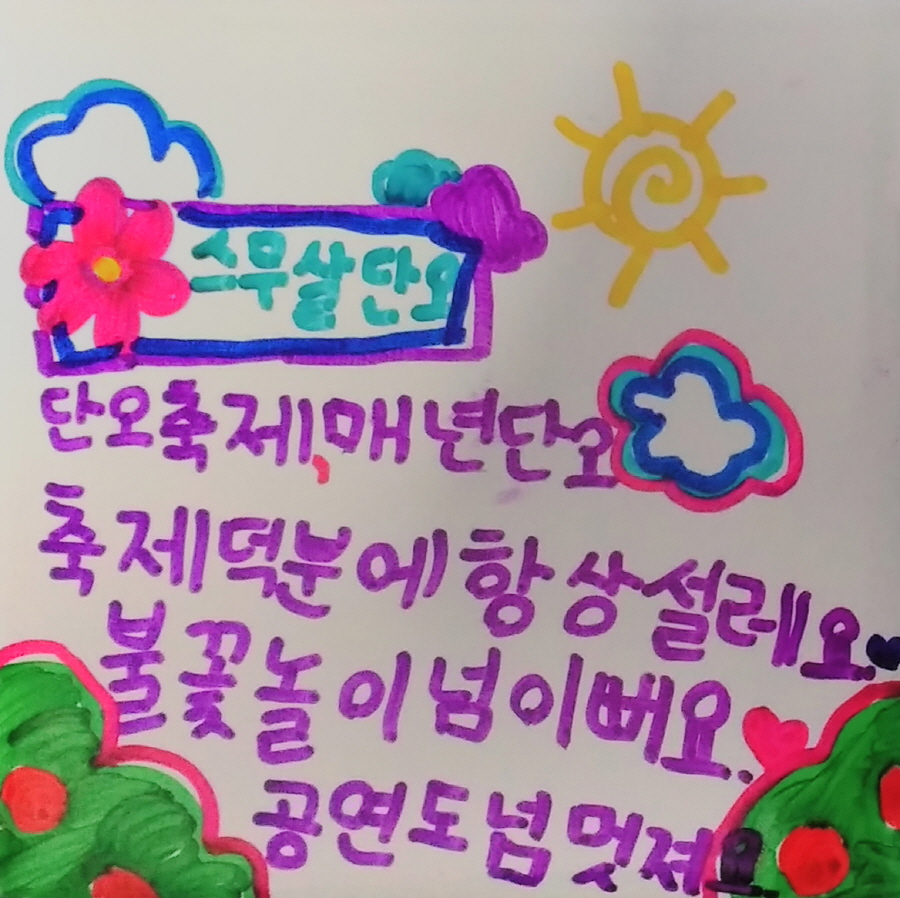 스무살단오
단오축제,매년단오
축제덕분에항상설레요.
불꽃놀이넘이뻐요.
공연도넘멋져요